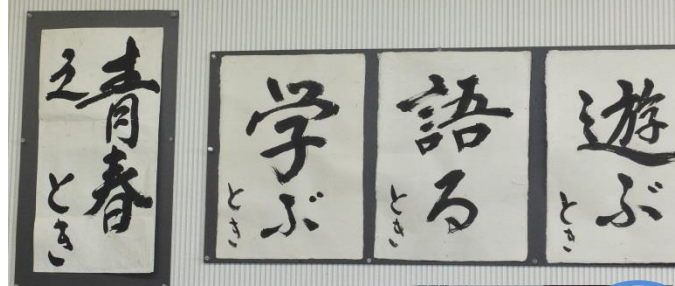 青春
之とき
学ぶ
とき
語る
とき
遊ぶ
とき